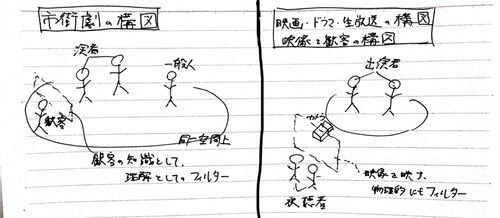 市街劇の構図
演者
一般人
観客
同じ空間上
観客の知識として、
理解としてのフィルター
映画・ドラマ・生放送の構図
映像と観客の構図
出演者
カメラ
視聴者
映像を映す、
物理的にもフィルター